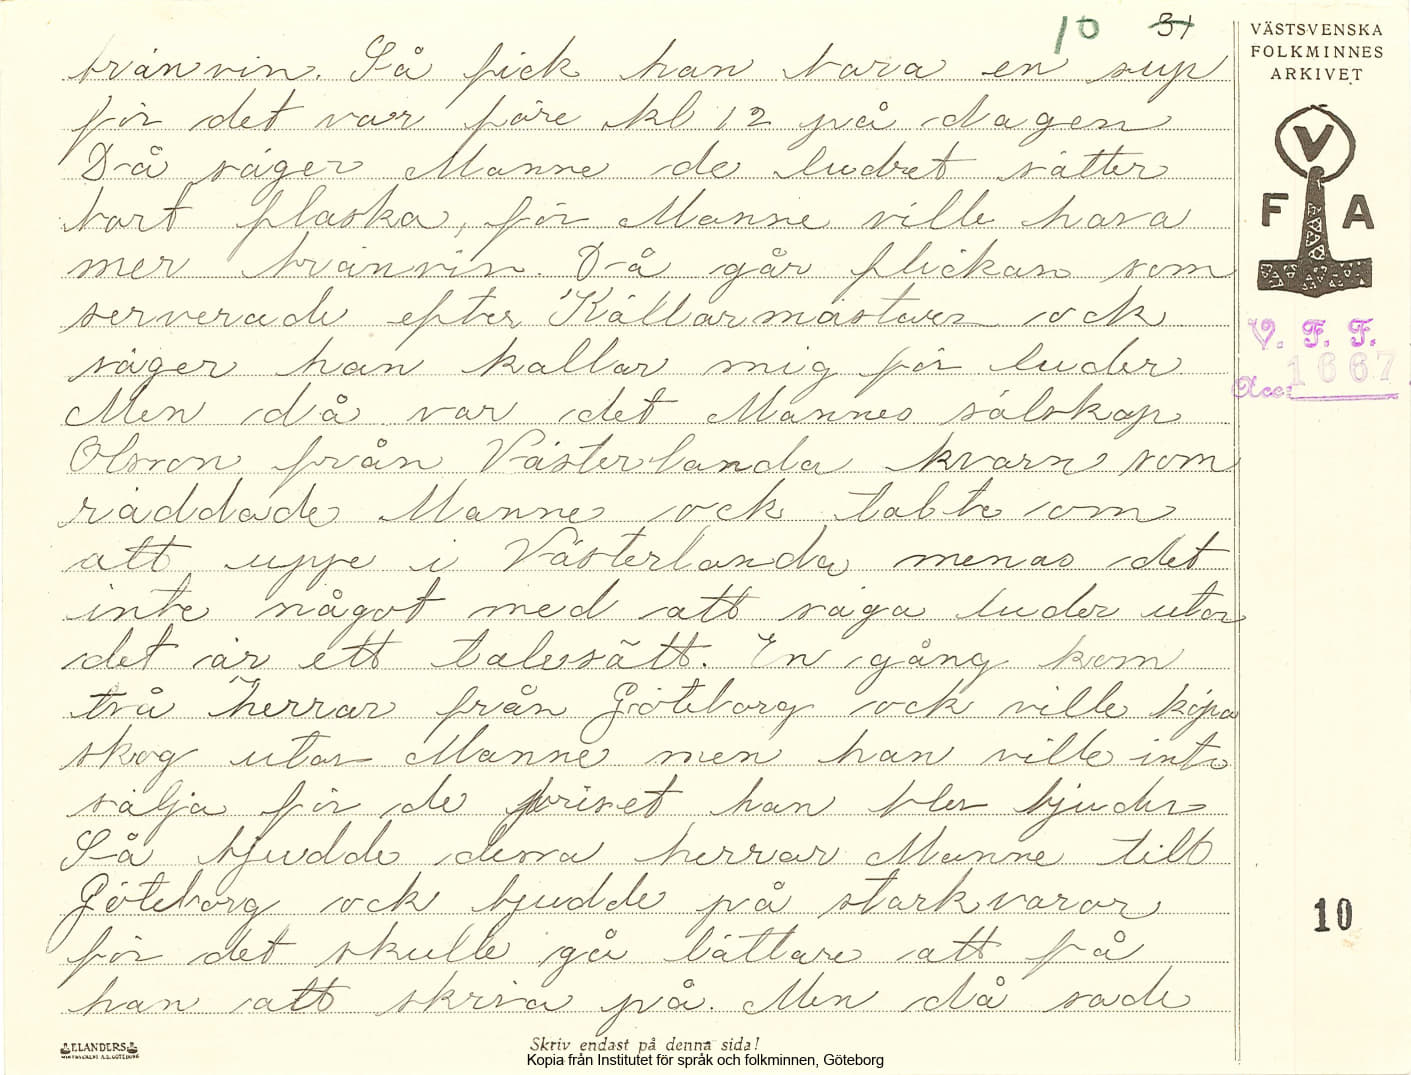 10 31
VÄSTSVENSKA
FOLKMINNES
ARKIVET
V
F A
V. F. F.
Acc: 1667
bränvin. Så fick han bara en sup
för det var före kl 12 på dagen
Då säger Manne de ludret sätter
bort flaska, för Manne ville hava
mer bränvin. Då går flickan som
serverade efter Källarmästaren ock
säger han kallar mig för luder
Men då var det Mannes sälskap
Olsson från Västerlanda kvarn som
räddade Manne ock talte om
att uppe i Västerlanda menas det
inte något med att säga luder utan
det är ett talesätt. En gång kom
två herrar från Göteborg ock ville köpa
skog utav Manne men han ville inte
sälja för de priset han blev bjuden
Så bjudde dessa herrar Manne till
Göteborg ock bjudde på starkvaror
för det skulle gå lättare att få
han att skriva på. Men då sade
10
ELANDERS
Skriv endast på denna sida!
Kopia från Institutet för språk och folkminnen, Göteborg